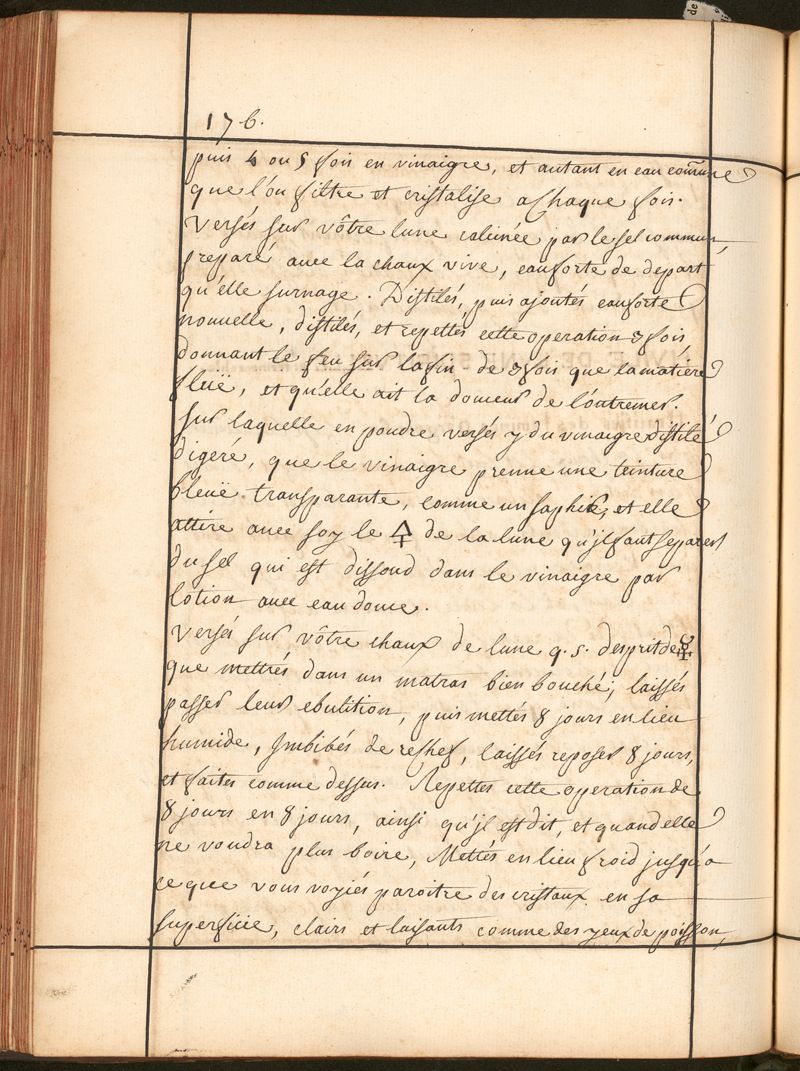 176.
puis 4 ou 5 fois en vinaigre, et autant en eau com̄une
que l'on filtre et cristalise a Chaque fois.
Versés sur vôtre lune calcinée par le sel commun,
preparé avec la chaux vive, eau forte de depart
qu'elle surnage. Distilés, puis ajoutés eau forte
nouvelle, distilés, et repettés cette operation 3 fois,
donnant le feu sur la fin de 3 fois que la matière
fluë, et qu'elle ait la couleur de l'outremer.
Sur laquelle en poudre versés y du vinaigre distilé
digeré, que le vinaigre prenne une teinture
bleuë transparante, comme un saphir, et elle
attire avec soy le 🜍 de la lune qu'jl faut separer
du sel qui est dissoud dans le vinaigre par
lotion avec eau douce.
Versés sur vôtre chaux de lune q. s. desprit de
que mettrés dans un matras bien bouché; laissés
passer leur ebulition, puis mettés 8 jours en lieu
humide, Jmbibés de rechef, laissés reposer 8 jours,
et faites comme dessus. Repettes cette operation de
8 jours en 8 jours, ainsi qu'jl est dit, et quand elle
ne voudra plus boire, Mettés en lieu froid jusqu'a
ce que vous voyiés paroitre des cristaux en sa
superficie, clairs et luisants comme des yeux de poisson,